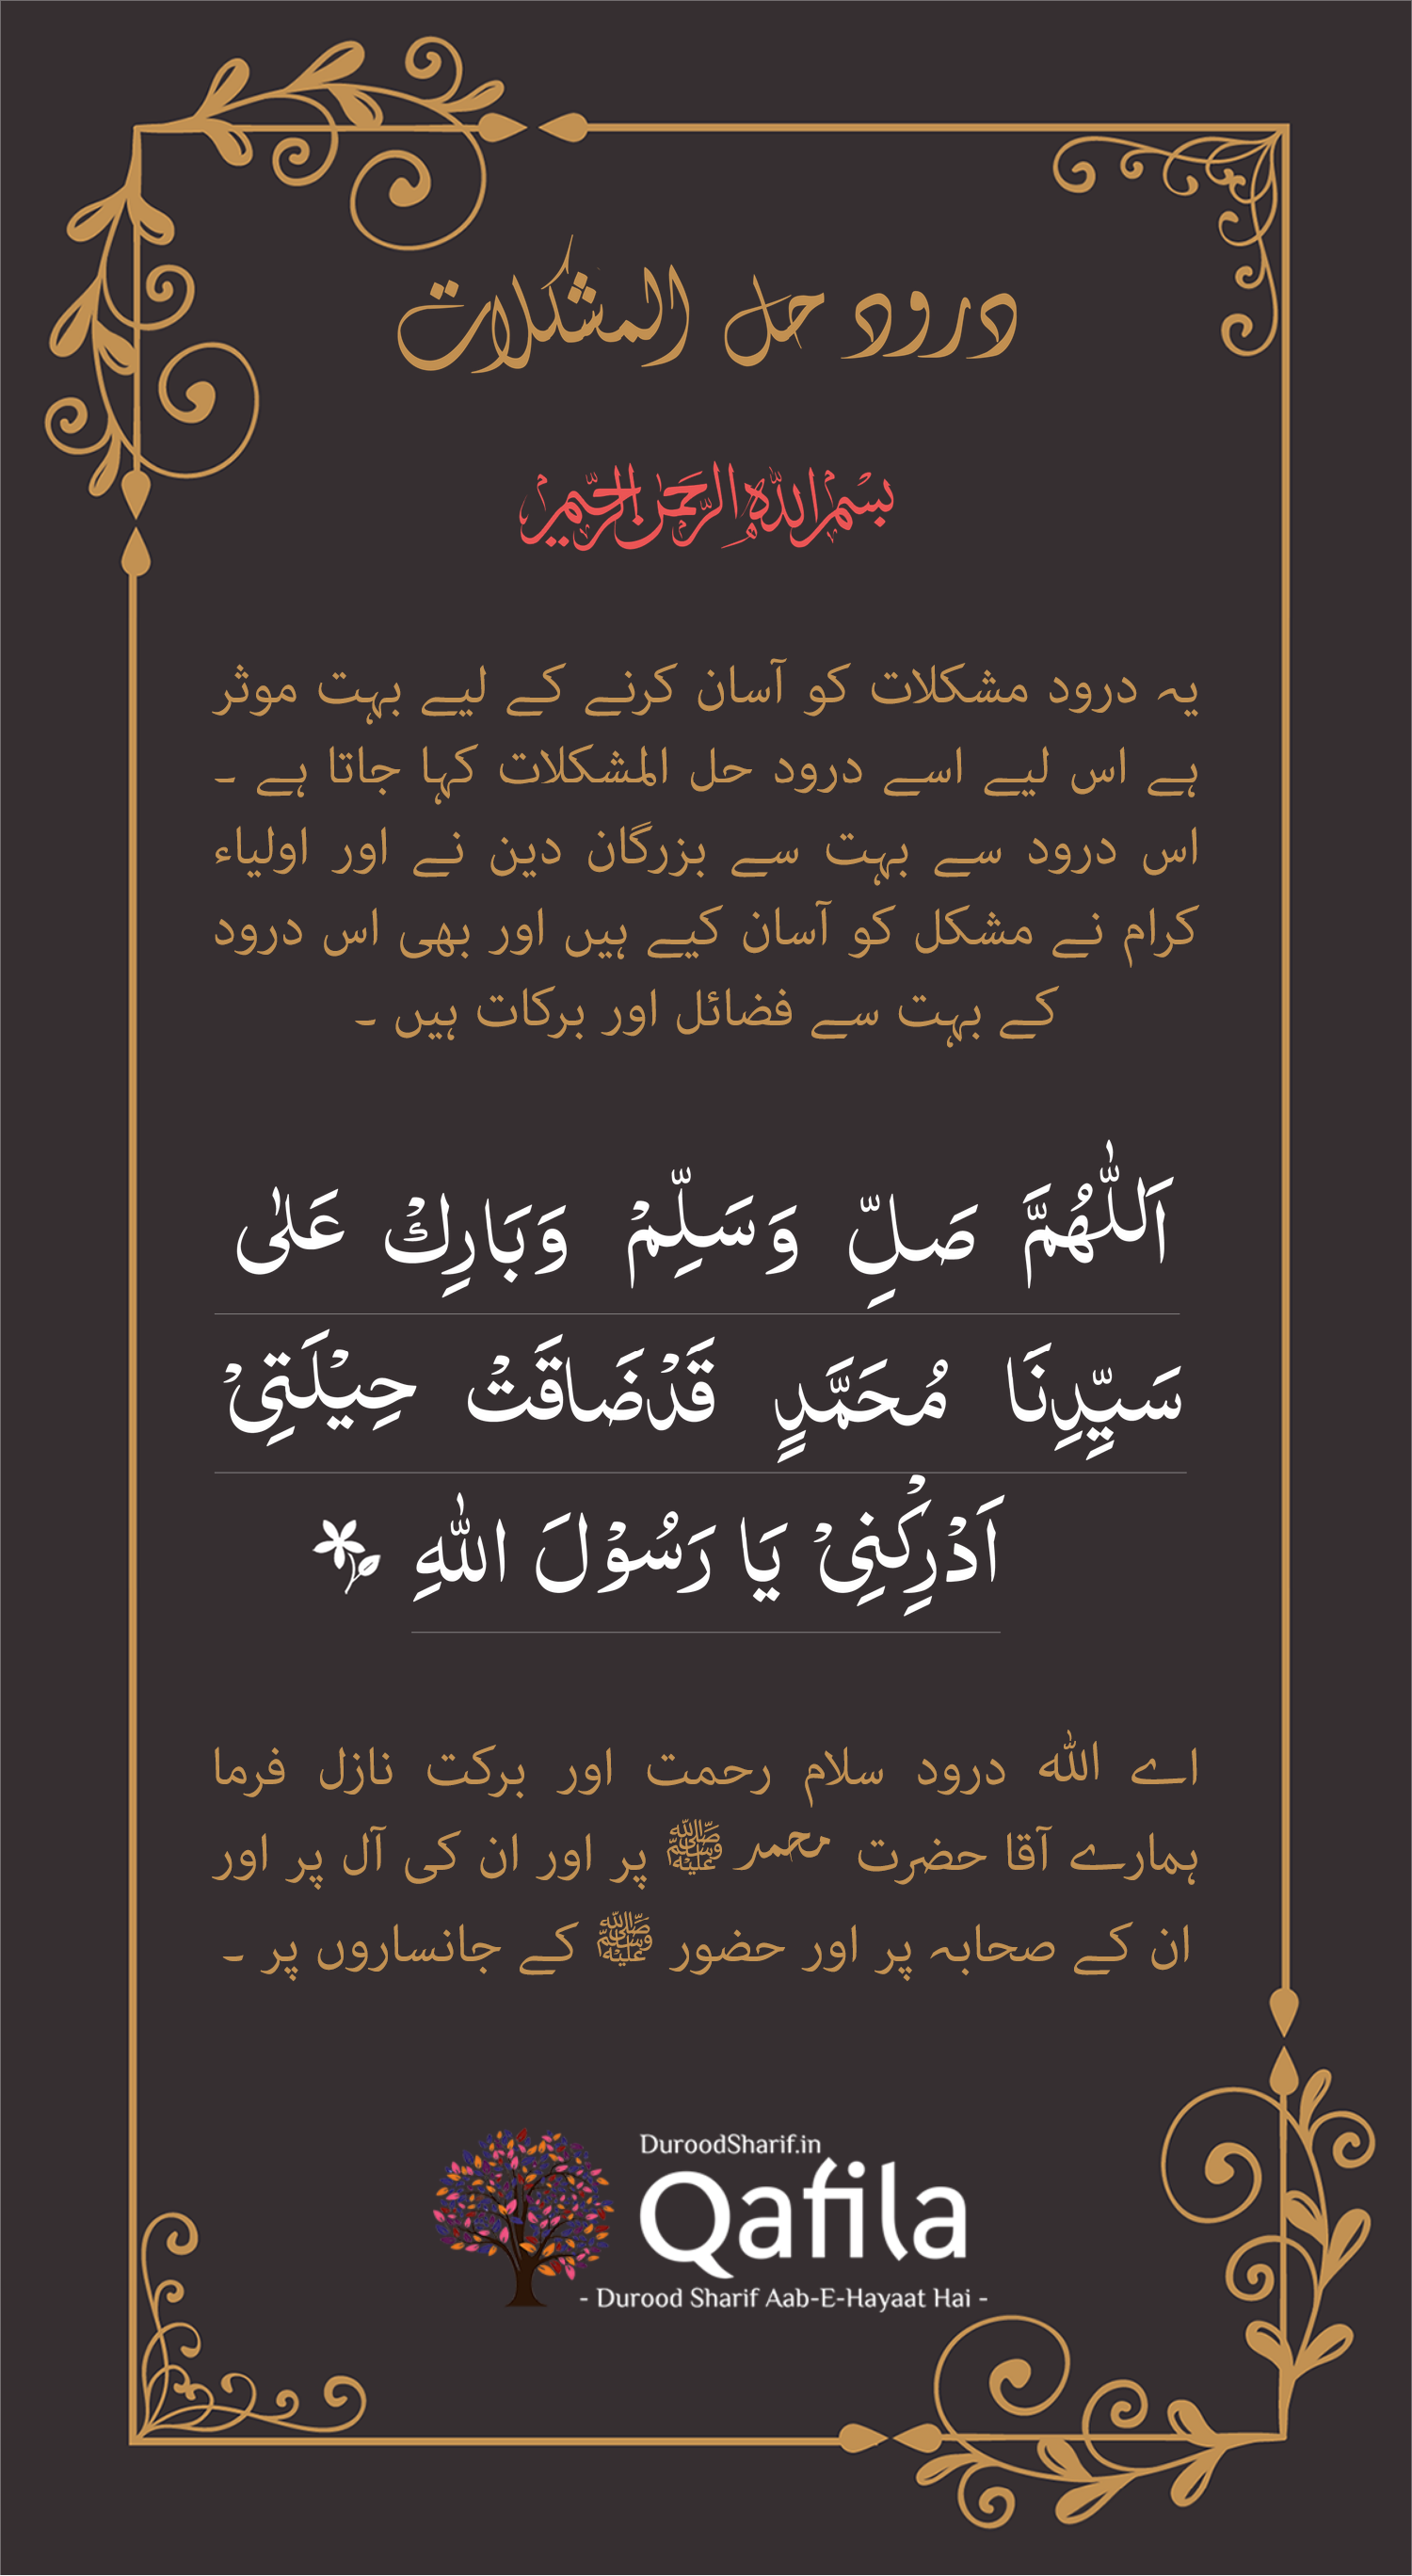 درود حل المشکلات
بسم الله الرحمن الرحيم
یہ درود مشکلات کو آسان کرنے کے لیے بہت موثر
ہے اس لیے اسے درود حل المشکلات کہا جاتا ہے ۔
اس درود سے بہت سے بزرگان دین نے اور اولیاء
کرام نے مشکل کو آسان کیے ہیں اور بھی اس درود
کے بہت سے فضائل اور برکات ہیں ۔
اَللّٰهُمَّ صَلِّ وَسَلِّمْ وَبَارِكْ عَلٰى
سَيِّدِنَا مُحَمَّدٍ قَدْضَاقَتْ حِيْلَتِیْ
اَدْرِكْنِیْ يَا رَسُوْلَ اللّٰهِ
اے اللّٰه درود سلام رحمت اور برکت نازل فرما
ہمارے آقا حضرت محمد ﷺ پر اور ان کی آل پر اور
ان کے صحابہ پر اور حضور ﷺ کے جانساروں پر ۔
DuroodSharif.in
Qafila
- Durood Sharif Aab-E-Hayaat Hai -